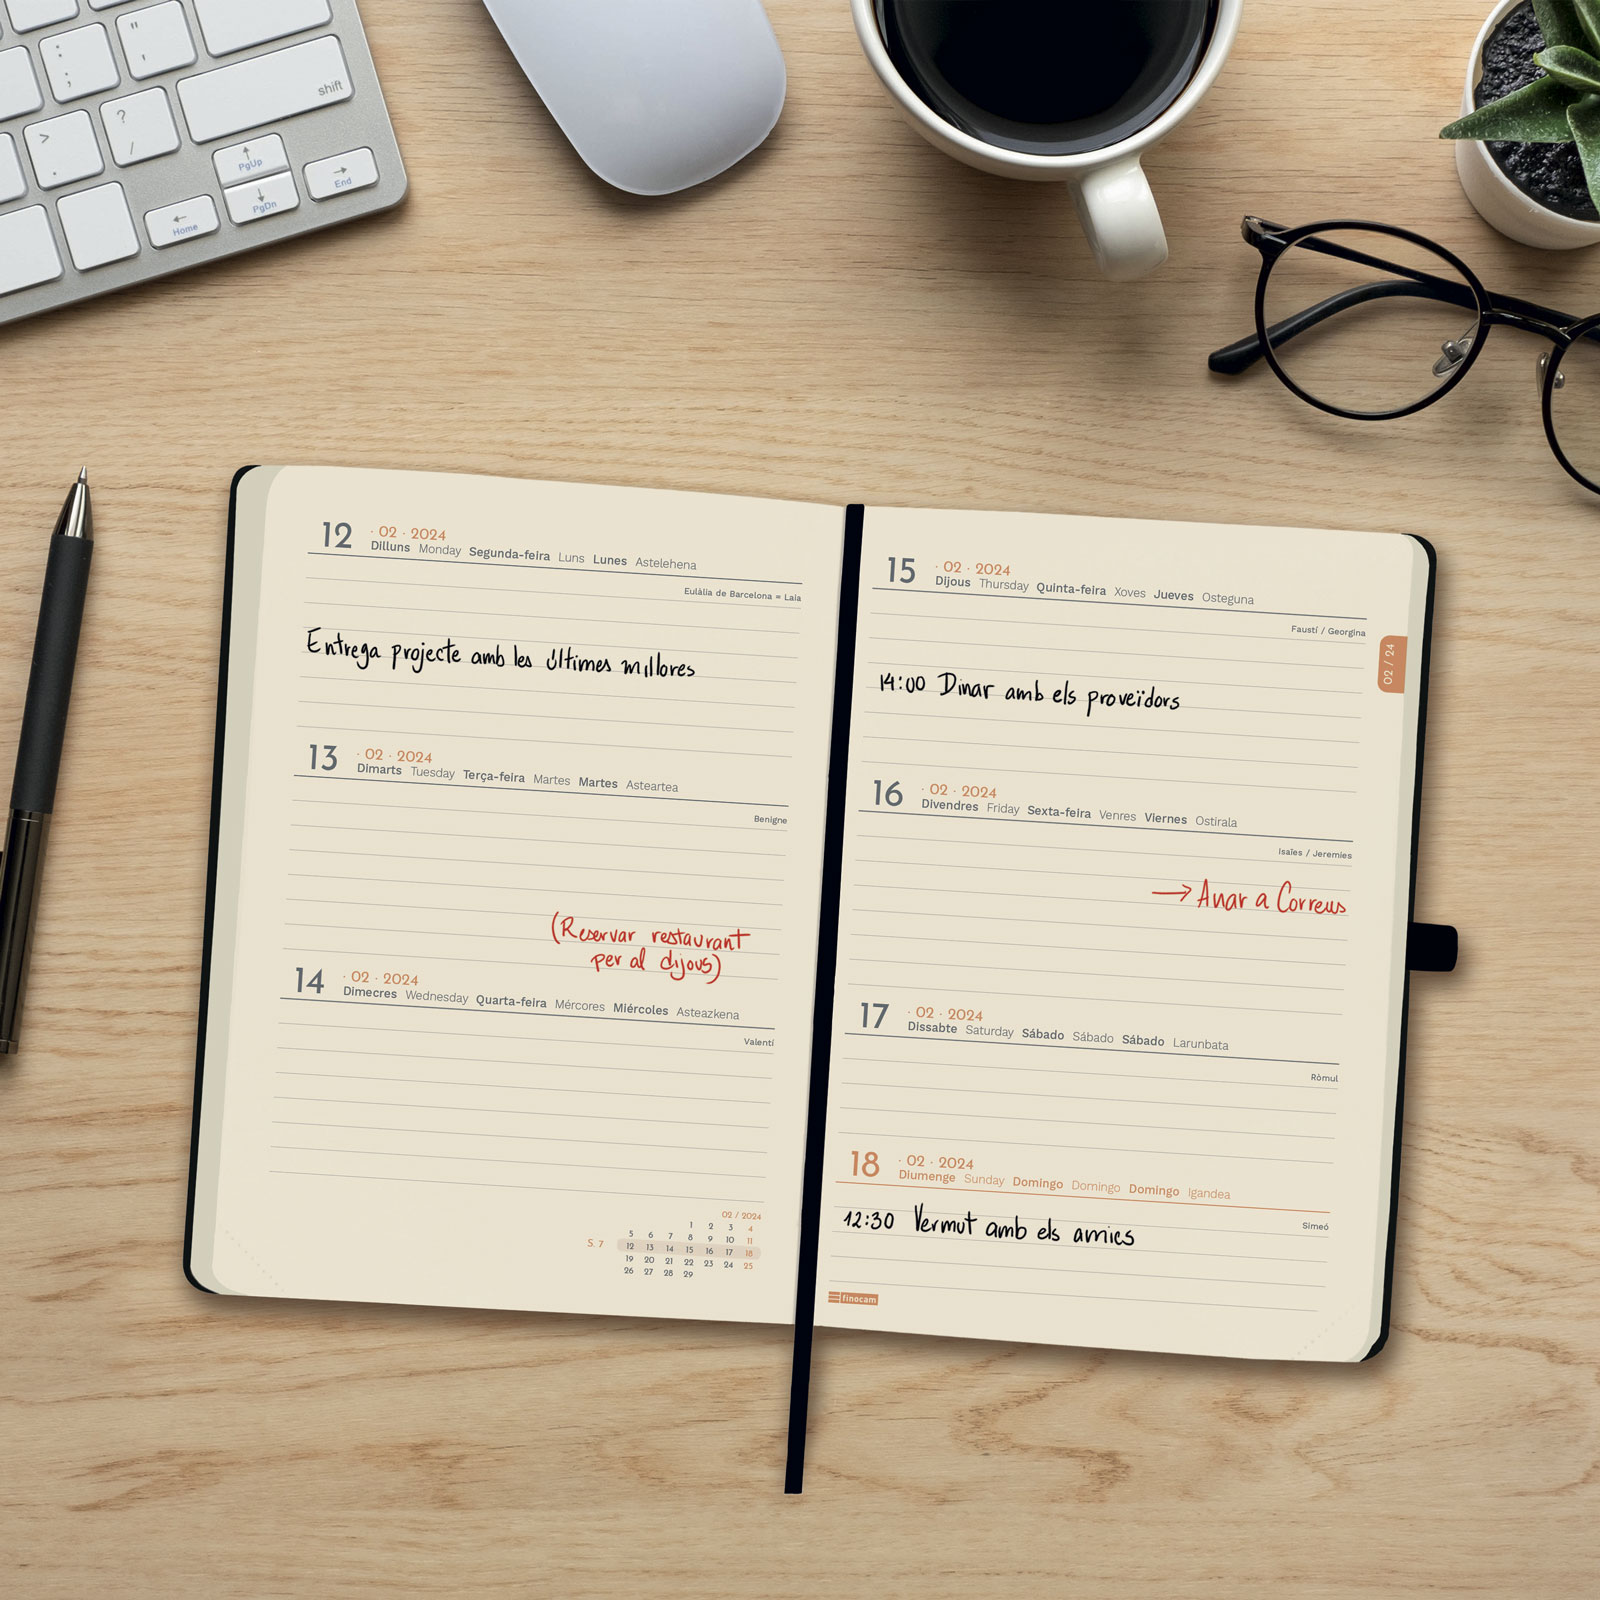 " '
: ;
? /
> .
shift
PgUp
Home
PgDn
End
12 · 02 · 2024
Dilluns Monday Segunda-feira Luns Lunes Astelehena
Eulàlia de Barcelona = Laia
Entrega projecte amb les últimes millores
13 · 02 · 2024
Dimarts Tuesday Terça-feira Martes Martes Asteartea
Benigne
(Reservar restaurant
per al dijous)
14 · 02 · 2024
Dimecres Wednesday Quarta-feira Mércores Miércoles Asteazkena
Valentí
02 / 2024
1 2 3 4
5 6 7 8 9 10 11
S. 7 12 13 14 15 16 17 18
19 20 21 22 23 24 25
26 27 28 29
15 · 02 · 2024
Dijous Thursday Quinta-feira Xoves Jueves Osteguna
Faustí / Georgina
02 / 24
14:00 Dinar amb els proveïdors
16 · 02 · 2024
Divendres Friday Sexta-feira Venres Viernes Ostirala
Isaïes / Jeremies
→ Anar a Correus
17 · 02 · 2024
Dissabte Saturday Sábado Sábado Sábado Larunbata
Ròmul
18 · 02 · 2024
Diumenge Sunday Domingo Domingo Domingo Igandea
Simeó
12:30 Vermut amb els amics
finocam